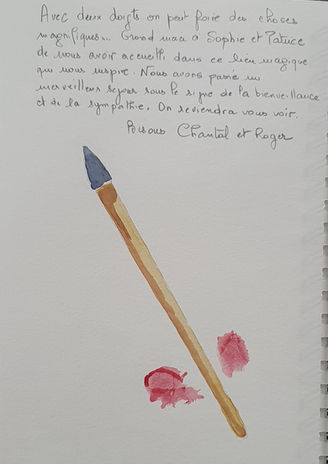 Avec deux doigts on peut faire des choses
magnifiques... Grand merci à Sophie et Patrice
de nous avoir accueilli dans ce lieu magique
qui nous inspire. Nous avons passé un
merveilleux séjour sous le signe de la bienveillance
et de la sympathie. On reviendra vous voir.
Bisous Chantal et Roger